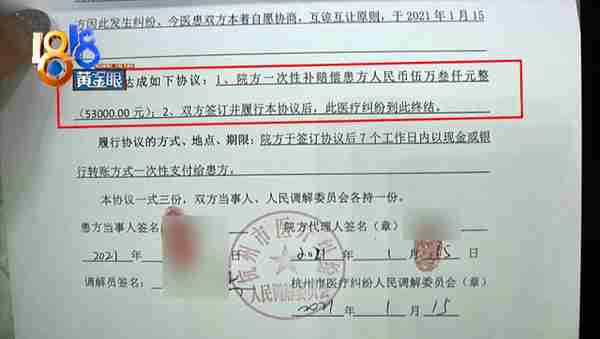 方因此发生纠纷。今医患双方本着自愿协商，互谅互让原则，于 2021 年 1 月 15
1818
黄金眼
达成如下协议：1、院方一次性补赔偿患方人民币伍万叁仟元整
（53000.00 元）；2、双方签订并履行本协议后，此医疗纠纷到此终结。
履行协议的方式、地点、期限：院方于签订协议后 7 个工作日内以现金或银
行转账方式一次性支付给患方。
本协议一式三份，双方当事人、人民调解委员会各持一份。
患方当事人签名（
院方代理人签名（章）
2021 年
2021 年 1 月 15 日
调解员签名：
杭州市医疗纠纷人民调解委员会（章）
2021 年 1 月 15
杭州市医疗纠纷
人民调解委员会